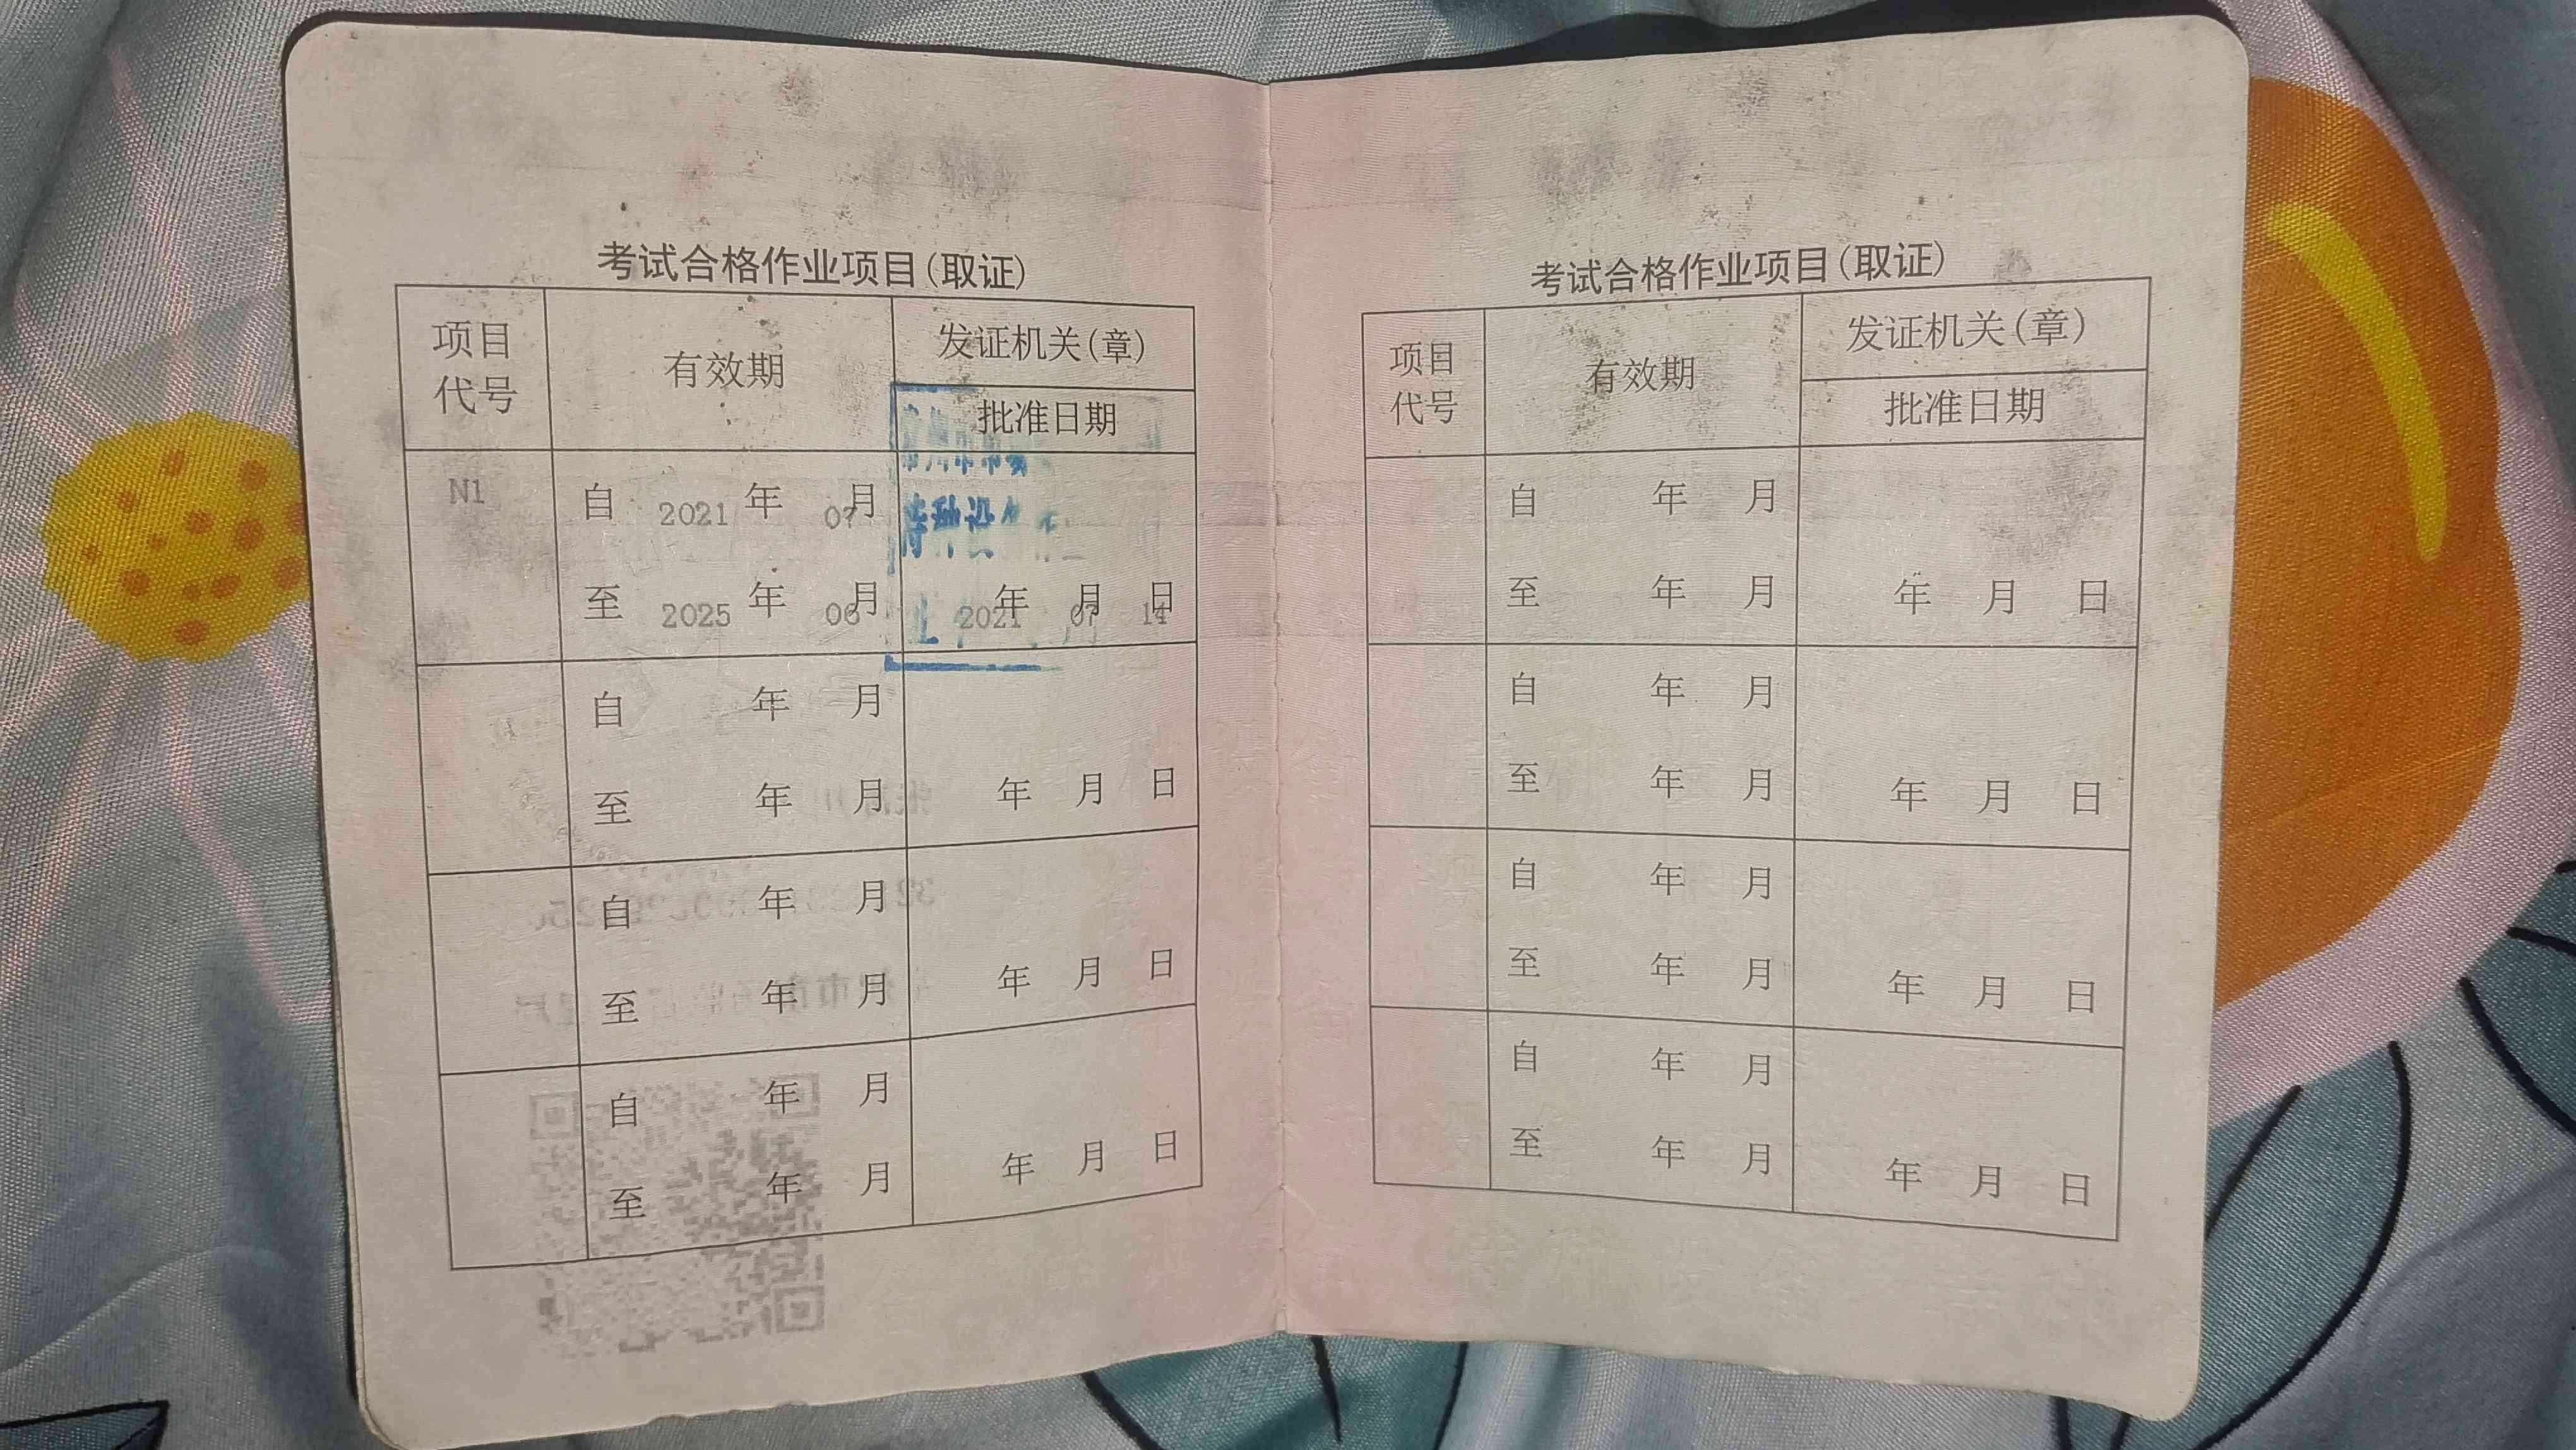 考试合格作业项目(取证)
项目代号 有效期 发证机关(章)
批准日期
N1 自 2021 年 07 月
特种设
至 2025 年 06 月 2021 年 07 月 14 日
自 年 月
至 年 月 年 月 日
自 年 月
至 年 月 年 月 日
自 年 月
至 年 月 年 月 日
考试合格作业项目(取证)
项目代号 有效期 发证机关(章)
批准日期
自 年 月
至 年 月 年 月 日
自 年 月
至 年 月 年 月 日
自 年 月
至 年 月 年 月 日
自 年 月
至 年 月 年 月 日